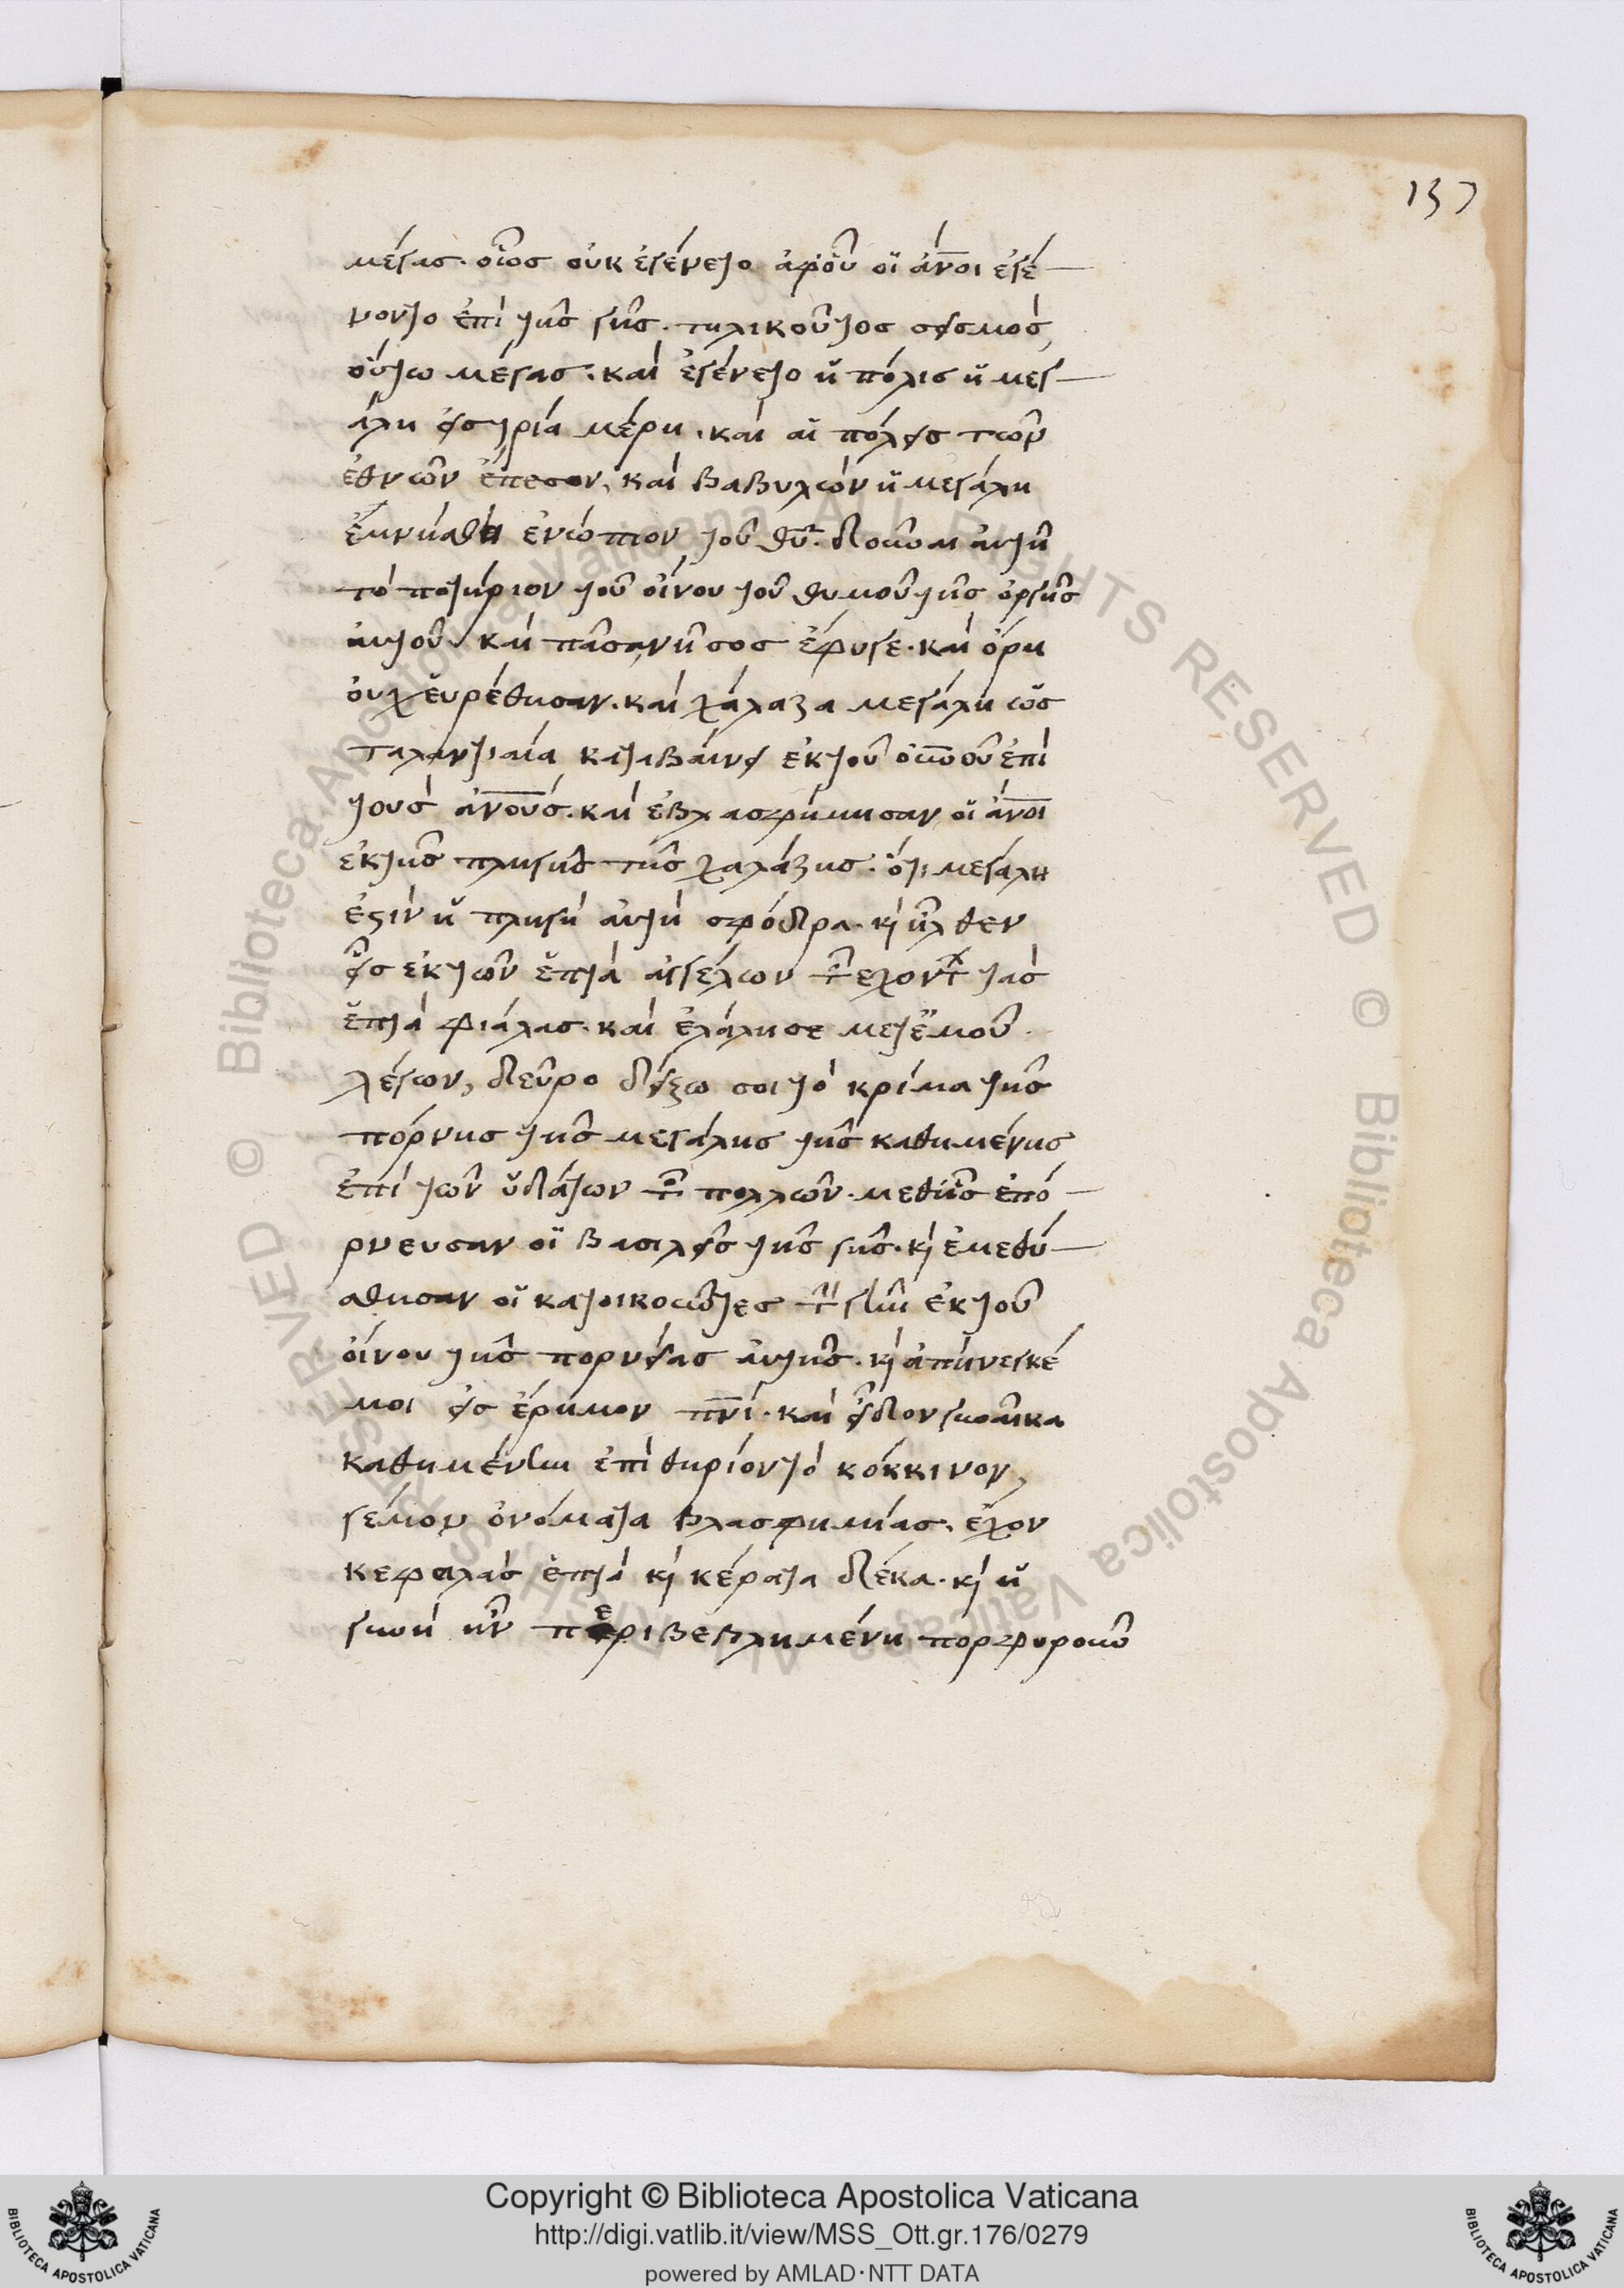 137
μέγας· οἷος οὐκ ἐγένετο ἀφοῦ οἱ ἄνοι ἐγέ
νοντο ἐπὶ τῆς γῆς. τηλικοῦτος σεισμὸς,
οὕτω μέγας. καὶ ἐγένετο ἡ πόλις ἡ μεγ
άλη εἰς τρία μέρη. καὶ αἱ πόλεις τῶν
ἐθνῶν ἔπεσον, καὶ βαβυλὼν ἡ μεγάλη
ἐμνήσθη ἐνώπιον τοῦ θυ. δοῦναι αὐτῆ
τὸ ποτήριον τοῦ οἴνου τοῦ θυμοῦ τῆς ὀργῆς
αὐτοῦ. καὶ πᾶσα νῆσος ἔφυγε. καὶ ὄρη
οὐχ εὑρέθησαν. καὶ χάλαζα μεγάλη ὡς
ταλαντιαία καταβαίνει ἐκ τοῦ οὐνοῦ ἐπὶ
τοὺς ἀνους. καὶ ἐβλασφήμησαν οἱ ἄνοι
ἐκ τῆς πληγῆς τῆς χαλάζης. ὅτι μεγάλη
ἐστὶν ἡ πληγὴ αὐτὴ σφόδρα. κὶ ἦλθεν
εἷς ἐκ τῶν ἑπτὰ ἀγγέλων τῶν ἐχόντων τὰς
ἑπτὰ φιάλας. καὶ ἐλάλησε μετ ἐμοῦ.
λέγων, δεῦρο δείξω σοι τὸ κρίμα τῆς
πόρνης τῆς μεγάλης τῆς καθημένης
ἐπὶ τῶν ὑδάτων τῶν πολλῶν. μεθ ἧς ἐπό
ρνευσαν οἱ βασιλεῖς τῆς γῆς. κὶ ἐμεθύ
σθησαν οἱ κατοικοῦντες τὴν γῆν ἐκ τοῦ
οἴνου τῆς πορνείας αὐτῆς. κὶ ἀπήνεγκέ
μοι εἰς ἔρημον πνι. καὶ εἶδον γυναῖκα
καθημένην ἐπὶ θηρίον τὸ κόκκινον,
γέμον ὀνόματα βλασφημίας. ἔχον
κεφαλὰς ἑπτὰ κὶ κέρατα δέκα. κὶ ἡ
γυνὴ ἦν περιβεβλημένη πορφυροῦν
Copyright © Biblioteca Apostolica Vaticana
http://digi.vatlib.it/view/MSS_Ott.gr.176/0279
powered by AMLAD·NTT DATA